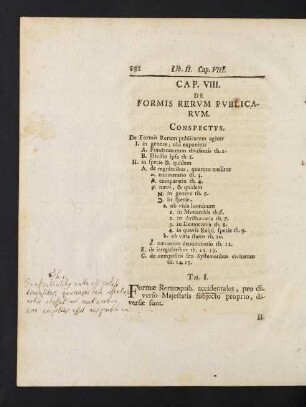 192 Lib. II. Cap. VIII.
CAP. VIII.
DE
FORMIS RERVM PVBLICA-
RVM.
CONSPECTVS.
De Formis Rerum publicarum agitur
I. in genere, ubi exponitur
A. Fundamentum divisionis th. 1.
B. Divisio ipsa th. 2.
II. in specie & quidem
A. de regularibus, quarum traditur
α. enumeratio th. 3.
β. comparatio th. 4.
γ. nævi, & quidem
א. in genere th. 5.
ב. in specie,
a. ob vitia hominum
1. in Monarchia th. 6.
2. in Aristocratia th. 7.
3. in Democratia th. 8.
4. in quavis Reipl. specie th. 9.
b. ob vitia status th. 10.
δ. nævorum denominatio th. 11.
B. de irregularibus th. 12. 13.
C. de compositis seu Systematibus civitatum
th. 14. 15.
TH. I.
Formæ Rerumpub. accidentales, pro di-
verso Majestatis subjecto proprio, di-
versæ sunt.
II